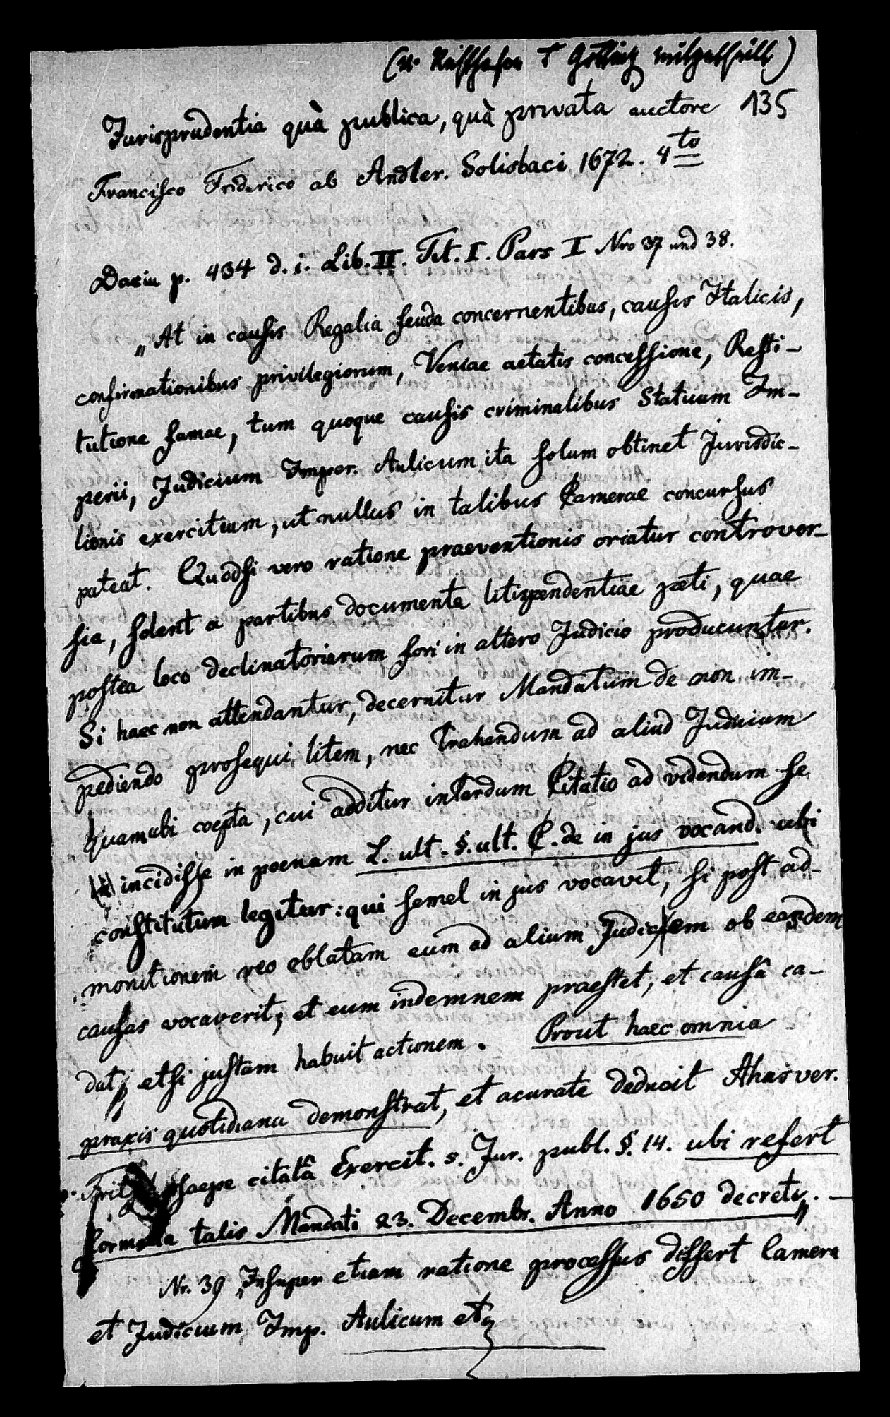 mitgetheilt)
Jurisprudentia quà publica, quà privata auctore 135
Francisco Friderico ab Andler. Solisbaci 1672. 4to
Darin p. 434 d. i. Lib. II. Tit. I. Pars I Nro 37 und 38.
„At in causis Regalia feuda concernentibus, causis Italicis,
confirmationibus privilegiorum, Veniae aetatis concessione, Resti-
tutione famae, tum quoque causis criminalibus Statuum Im-
perii, Judicium Imper. Aulicum ita solum obtinet Jurisdic-
tionis exercitium, ut nullus in talibus Camerae concursus
pateat. Quodsi vero ratione praeventionis oriatur controver-
sia, solent a partibus documenta litispendentiae peti, quae
postea loco declinatoriarum fori in altero Judicio producuntur.
Si haec non attendantur, decernitur Mandatum de non im-
pediendo prosequi litem, nec trahendum ad aliud Judicium
quam ubi coepta, cui additur interdum Citatio ad videndum se
incidisse in poenam L. ult. §. ult. C. de in jus vocand. ubi
constitutum legitur: qui semel in jus vocavit, si post ad-
monitionem reo oblatam eum ad alium Judicem ob easdem
causas vocaverit, et eum indemnem praestet, et causâ ca-
dat, etsi justam habuit actionem. Prout haec omnia
praxis quotidiana demonstrat, et acurate deducit Ahasver.
Frit saepe citatâ Exercit. s. Jur. publ. §. 14. ubi refert
formula talis Mandati 23. Decembr. Anno 1650 decreti„. —
Nr. 39 „Insuper etiam ratione processus differt Camera
et Judicium Imp. Aulicum etc